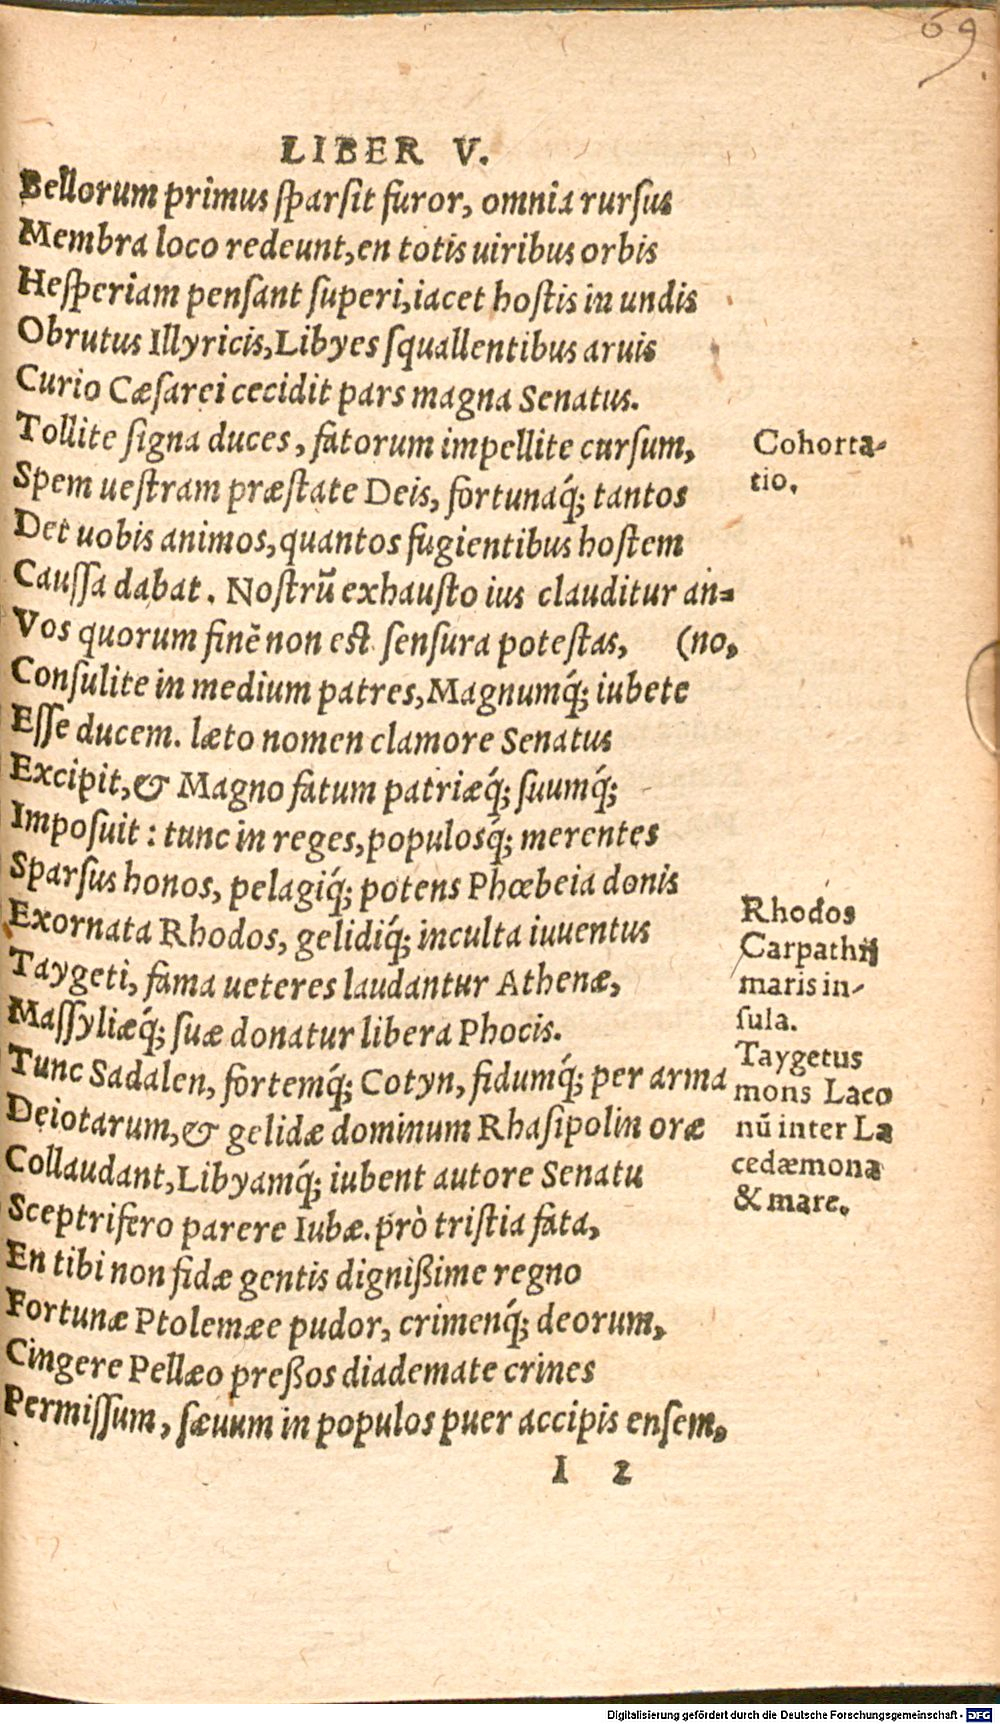 69
LIBER V.
Bellorum primus sparsit furor, omnia rursus
Membra loco redeunt, en totis uiribus orbis
Hesperiam pensant superi, iacet hostis in undis
Obrutus Illyricis, Libyes squallentibus aruis
Curio Cæsarei cecidit pars magna Senatus.
Tollite signa duces, fatorum impellite cursum,
Spem uestram præstate Deis, fortunaq́; tantos
Det uobis animos, quantos fugientibus hostem
Caussa dabat. Nostrũ exhausto ius clauditur an=
Vos quorum finẽ non est sensura potestas, (no,
Consulite in medium patres, Magnumq́; iubete
Esse ducem. læto nomen clamore Senatus
Excipit, & Magno fatum patriæq́; suumq́;
Imposuit: tunc in reges, populosq́; merentes
Sparsus honos, pelagiq́; potens Phœbeia donis
Exornata Rhodos, gelidiq́; inculta iuuentus
Taygeti, fama ueteres laudantur Athenæ,
Massyliæq́; suæ donatur libera Phocis.
Tunc Sadalen, fortemq́; Cotyn, fidumq́; per arma
Deiotarum, & gelidæ dominum Rhasipolin oræ
Collaudant, Libyamq́; iubent autore Senatu
Sceptrifero parere Iubæ. prò tristia fata,
En tibi non fidæ gentis dignißime regno
Fortunæ Ptolemæe pudor, crimenq́; deorum,
Cingere Pellæo preßos diademate crines
Permissum, sæuum in populos puer accipis ensem,
I 2
Cohorta-
tio.
Rhodos
Carpathij
maris in-
sula.
Taygetus
mons Laco
nũ inter La
cedæmona
& mare.
Digitalisierung gefördert durch die Deutsche Forschungsgemeinschaft - DFG